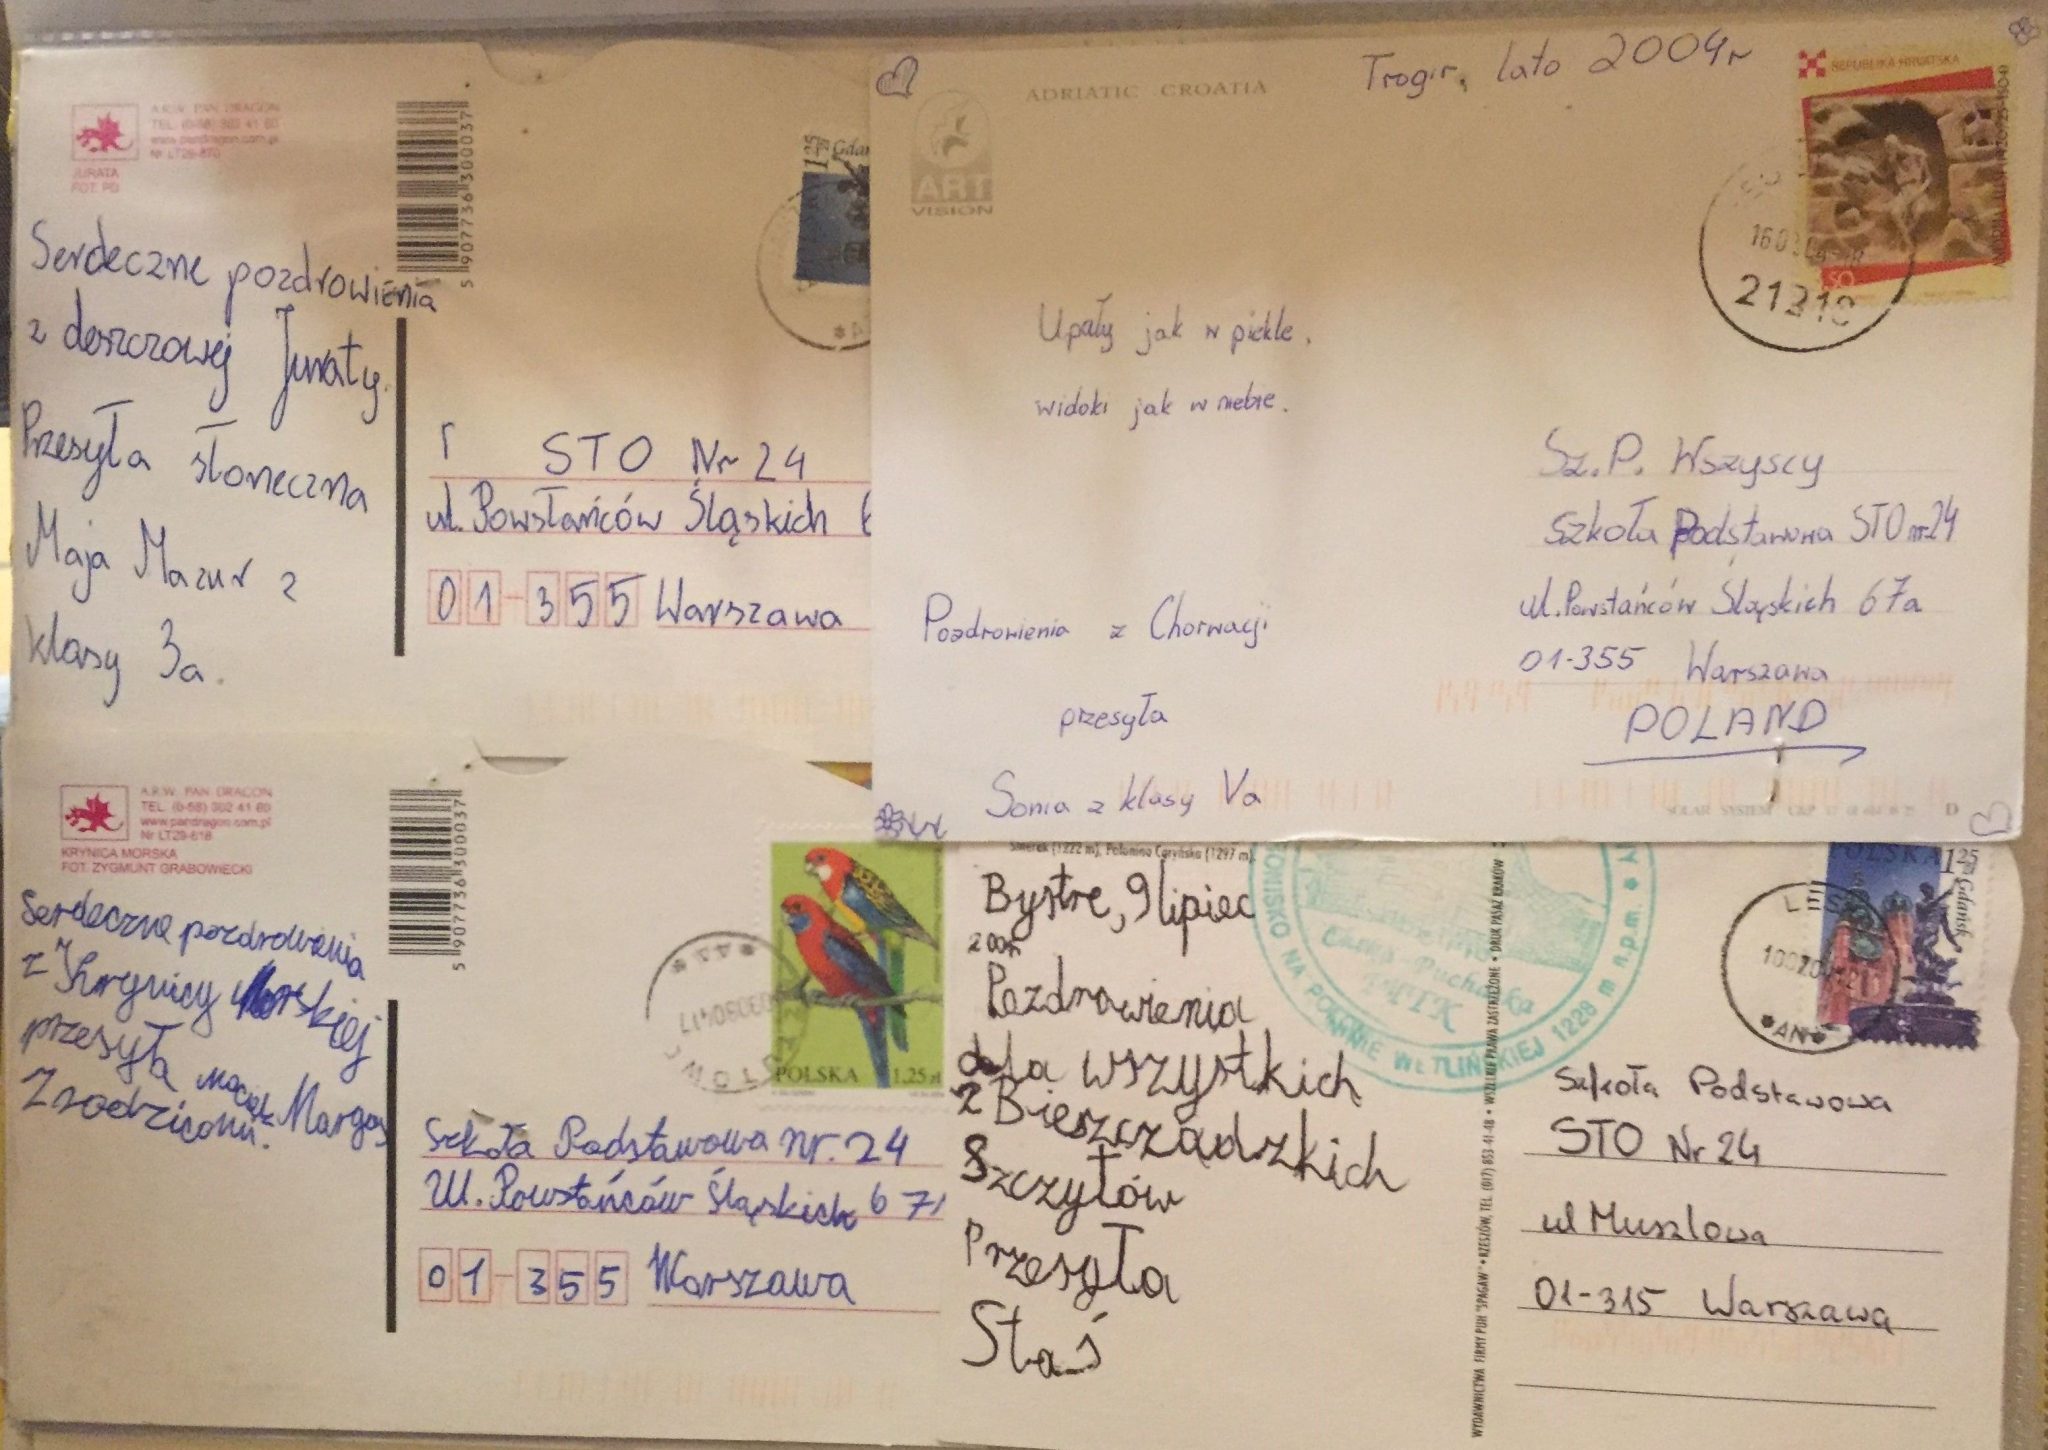 A.R.W. PAN DRAGON
TEL. (0-58) 302 41 60
www.pandragon.com.pl
Nr LT29-
JURATA
FOT. PD
5 907736 300037
1 25 Gda
Serdeczne pozdrowienia
z deszczowej Juraty.
Przesyła słoneczna
Maja Mazur z
klasy 3a.
STO Nr 24
ul. Powstańców Śląskich 6
01-355 Warszawa
ADRIATIC CROATIA
ART
VISION
Trogir, lato 2004r
REPUBLIKA HRVATSKA
21218
Upały jak w piekle,
widoki jak w niebie.
Pozdrowienia z Chorwacji
przesyła
Sonia z klasy Va
Sz.P. Wszyscy
Szkoła Podstawowa STO nr 24
ul. Powstańców Śląskich 67a
01-355 Warszawa
POLAND
SOLAR SYSTEM
D
A.R.W. PAN DRAGON
TEL. (0-58) 302 41 60
www.pandragon.com.pl
Nr LT29-618
KRYNICA MORSKA
FOT. ZYGMUNT GRABOWIECKI
5 907736 300037
Serdeczne pozdrowienia
z Krynicy Morskiej
przesyła Maciek Margas
Z rodzicami.
POLSKA 1,25 zł
Szkoła Podstawowa nr. 24
Ul. Powstańców Śląskich 67
01-355 Warszawa
Smerek (1222 m), Połonina Caryńska (1297 m).
Bystre, 9 lipiec
Pozdrowienia
dla wszystkich
z Bieszczadzkich
Szczytów
Przesyła
Staś
NA POŁONINIE WETLIŃSKIEJ 1228 m n.p.m.
Chatka Puchatka
PTTK
WYDAWNICTWA FIRMY PUH "SPAGAW" • RZESZÓW, TEL. (017) 853-41-48 • WSZELKIE PRAWA ZASTRZEŻONE • DRUK PASAŻ KRAKÓW
POLSKA 1 25
Gdańsk
Szkoła Podstawowa
STO Nr 24
ul Muszlowa
01-315 Warszawa